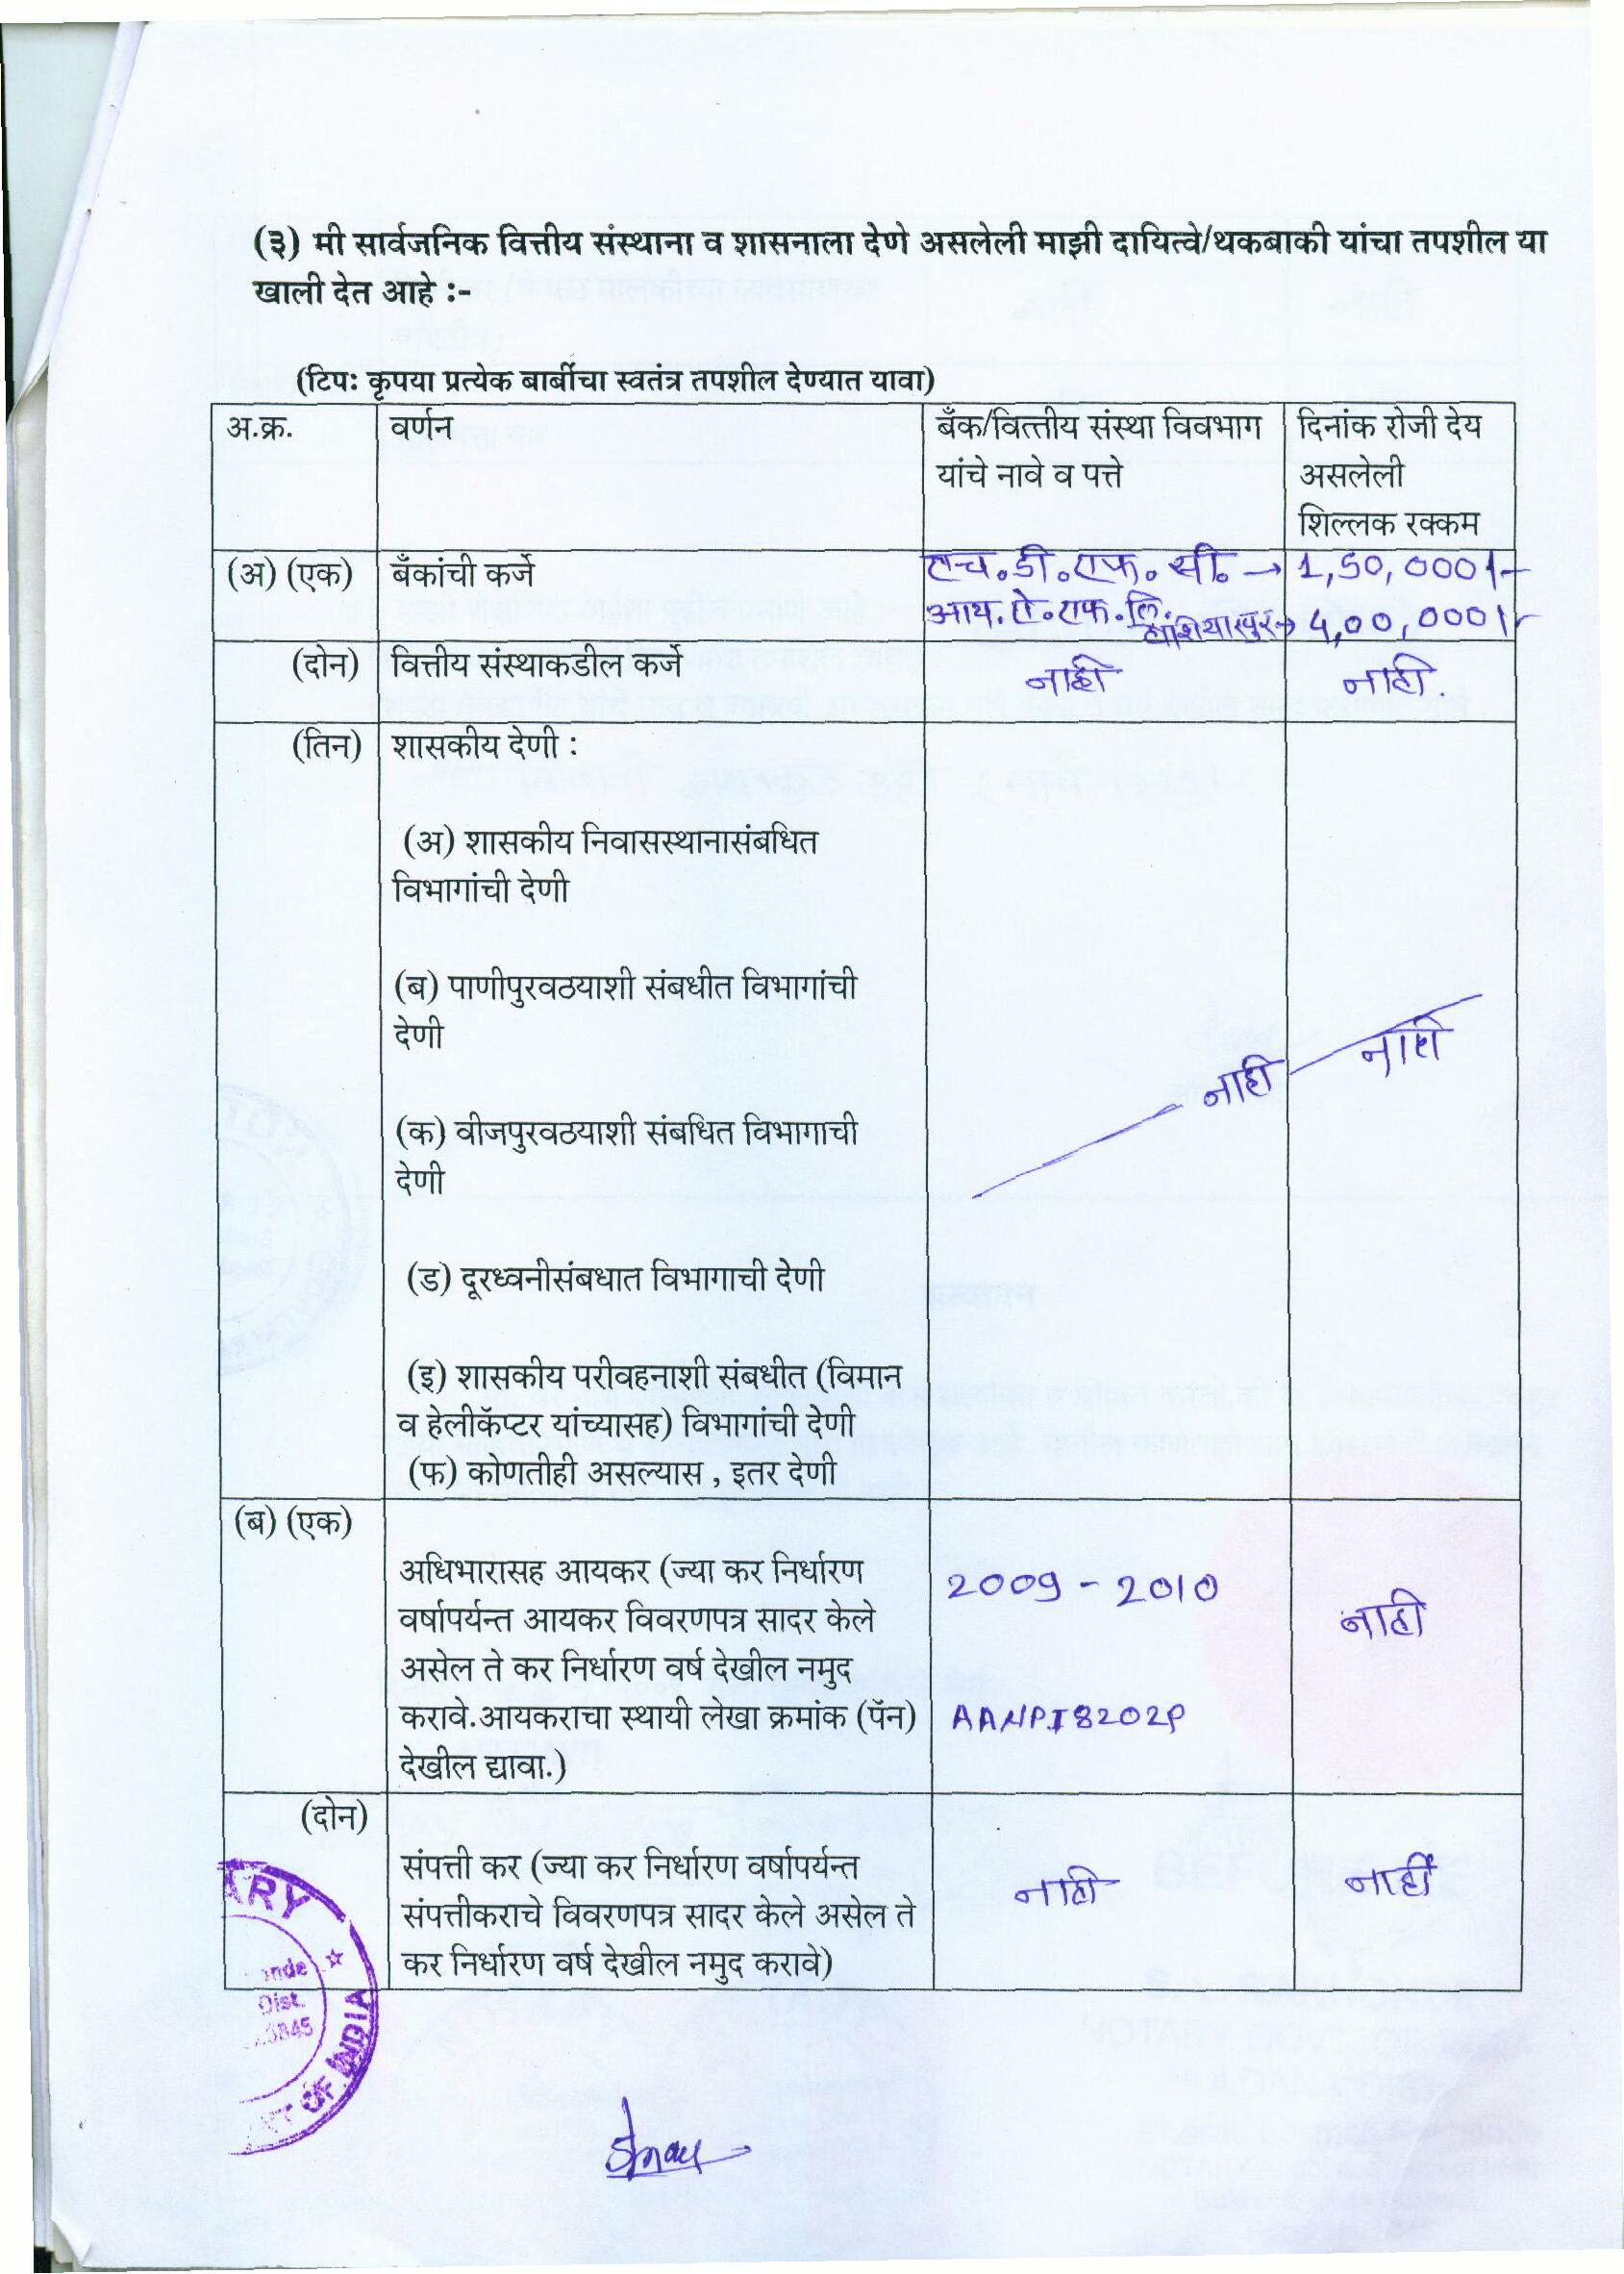 (३) मी सार्वजनिक वित्तीय संस्थाना व शासनाला देणे असलेली माझी दायित्वे/थकबाकी यांचा तपशील या
खाली देत आहे :-
(टिपः कृपया प्रत्येक बार्बीचा स्वतंत्र तपशील देण्यात यावा)
अ.क्र.
वर्णन
बँक/वित्तीय संस्था विवभाग
यांचे नावे व पत्ते
दिनांक रोजी देय
असलेली
शिल्लक रक्कम
(अ) (एक)
बँकांची कर्जे
एच.डी.एफ.सी. → 1,50,000/-
आय.ऐ.एफ.लि. → 4,00,000/-
(दोन)
वित्तीय संस्थाकडील कर्जे
नाही
नाही.
(तिन)
शासकीय देणी :
(अ) शासकीय निवासस्थानासंबधित
विभागांची देणी
(ब) पाणीपुरवठयाशी संबधीत विभागांची
देणी
(क) वीजपुरवठयाशी संबधित विभागाची
देणी
(ड) दूरध्वनीसंबधात विभागाची देणी
(इ) शासकीय परीवहनाशी संबधीत (विमान
व हेलीकॅप्टर यांच्यासह) विभागांची देणी
(फ) कोणतीही असल्यास , इतर देणी
नाही
नाही
(ब) (एक)
अधिभारासह आयकर (ज्या कर निर्धारण
वर्षापर्यन्त आयकर विवरणपत्र सादर केले
असेल ते कर निर्धारण वर्ष देखील नमुद
करावे.आयकराचा स्थायी लेखा क्रमांक (पॅन)
देखील द्यावा.)
2009 - 2010
AANPI8202P
नाही
(दोन)
संपत्ती कर (ज्या कर निर्धारण वर्षापर्यन्त
संपत्तीकराचे विवरणपत्र सादर केले असेल ते
कर निर्धारण वर्ष देखील नमुद करावे)
नाही
नाही
ARY
onde
Dist.
3845
OF INDIA